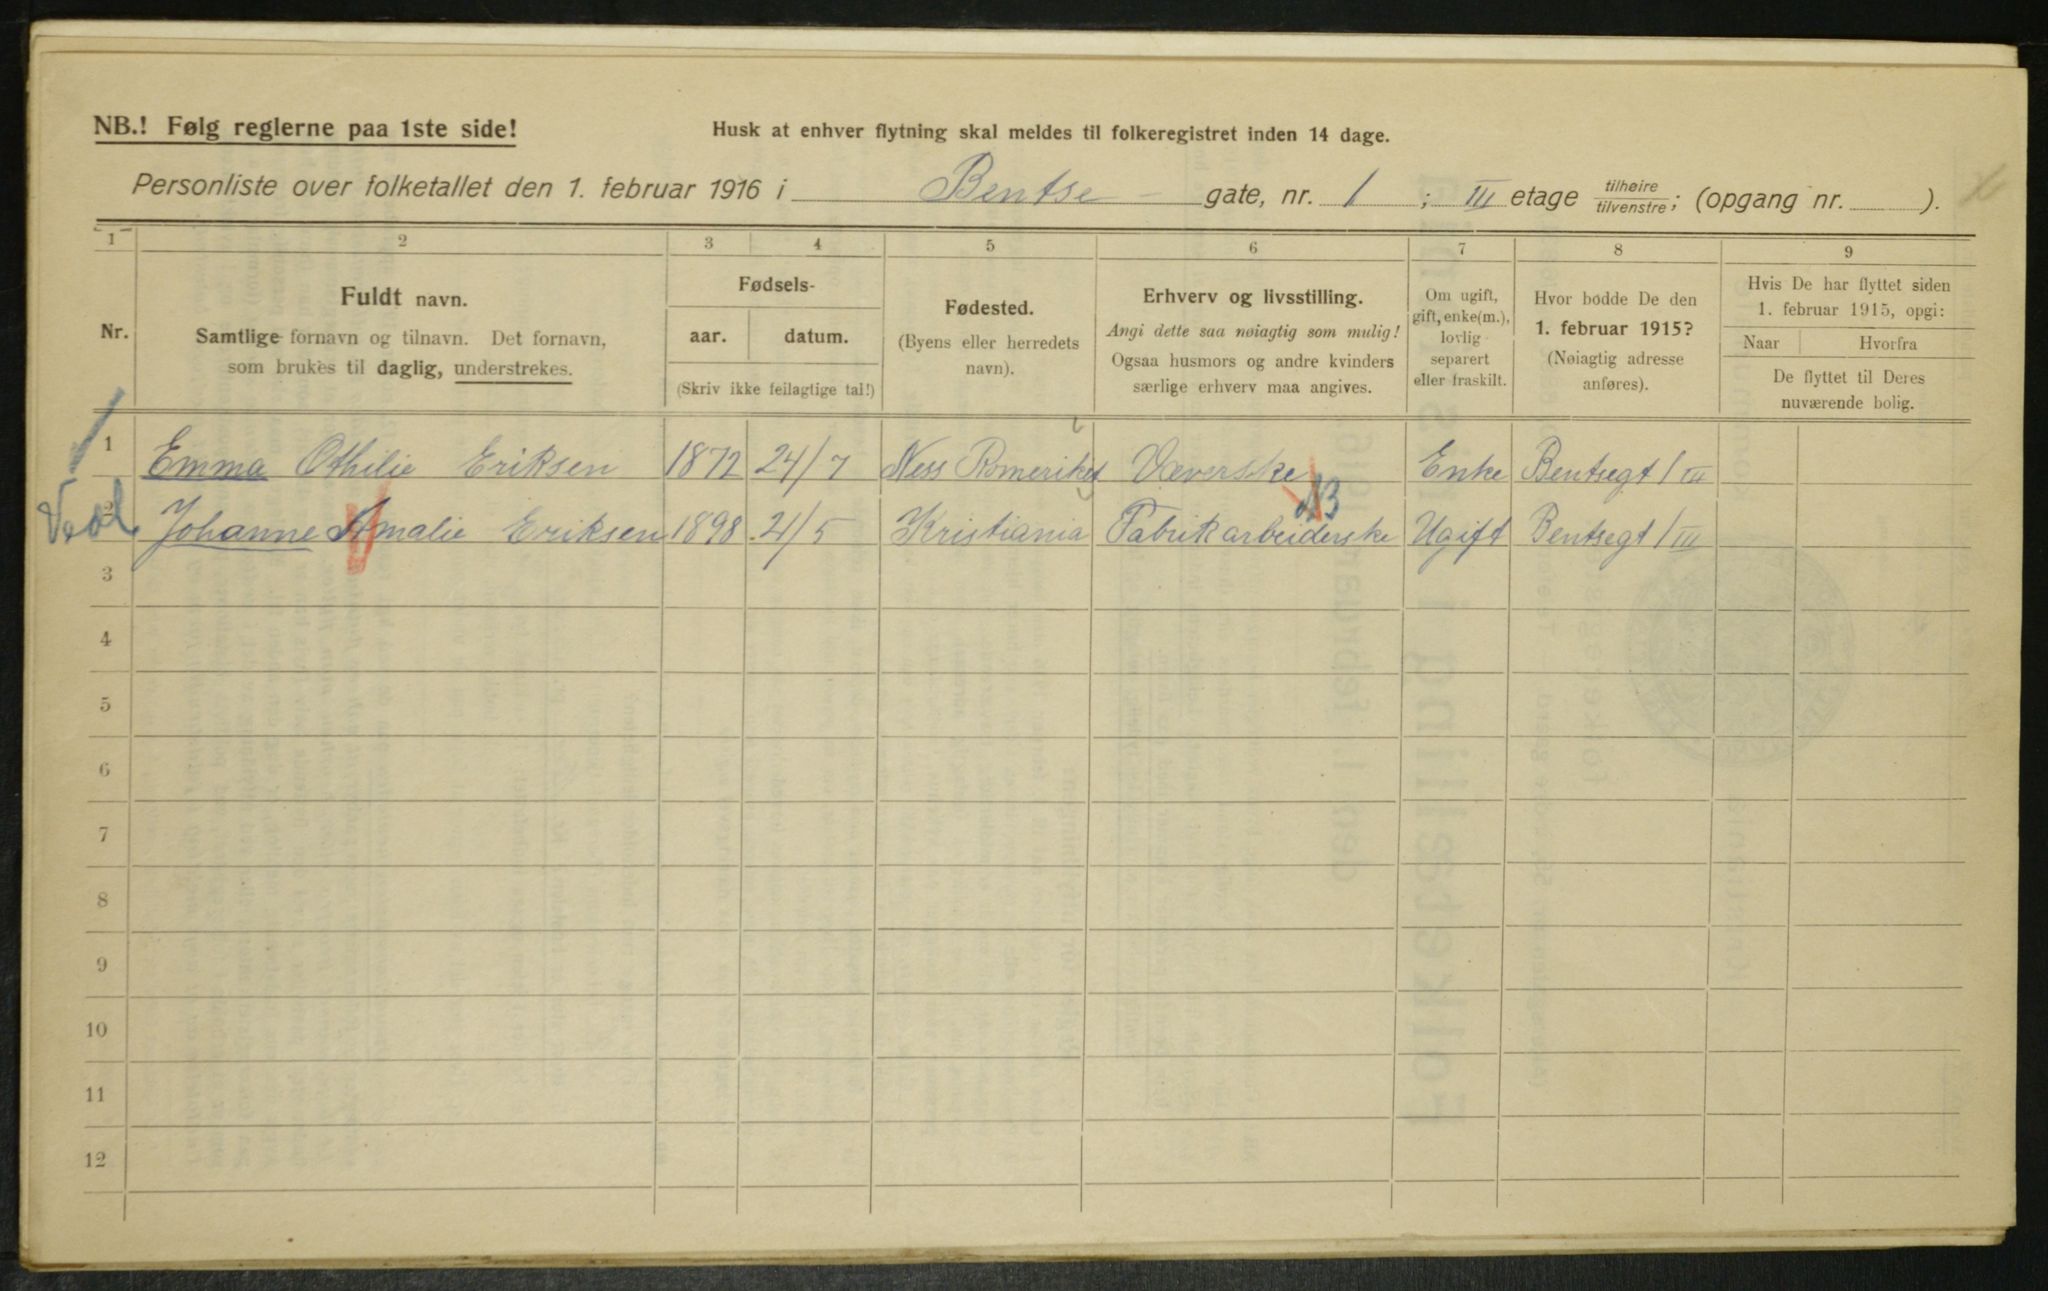 NB.! Følg reglerne paa 1ste side!
Husk at enhver flytning skal meldes til folkeregistret inden 14 dage.
Personliste over folketallet den 1. februar 1916 i Bentse gate, nr. 1 ; III etage tilhøire / tilvenstre ; (opgang nr. ).
1 2 3 4 5 6 7 8 9
Nr.
Fuldt navn.
Samtlige fornavn og tilnavn. Det fornavn,
som brukes til daglig, understrekes.
Fødsels-
aar. datum.
(Skriv ikke feilagtige tal!)
Fødested.
(Byens eller herredets
navn).
Erhverv og livsstilling.
Angi dette saa nøiagtig som mulig!
Ogsaa husmors og andre kvinders
særlige erhverv maa angives.
Om ugift,
gift, enke(m.),
lovlig
separert
eller fraskilt.
Hvor bodde De den
1. februar 1915?
(Nøiagtig adresse
anføres).
Hvis De har flyttet siden
1. februar 1915, opgi:
Naar Hvorfra
De flyttet til Deres
nuværende bolig.
1 Emma Othilie Eriksen 1872 24/7 Ness Romerike Væverske Enke Bentsegt 1 III
2 Johanne Amalie Eriksen 1898 21/5 Kristiania Fabrikarbeiderske Ugift Bentsegt 1 III
3
4
5
6
7
8
9
10
11
12